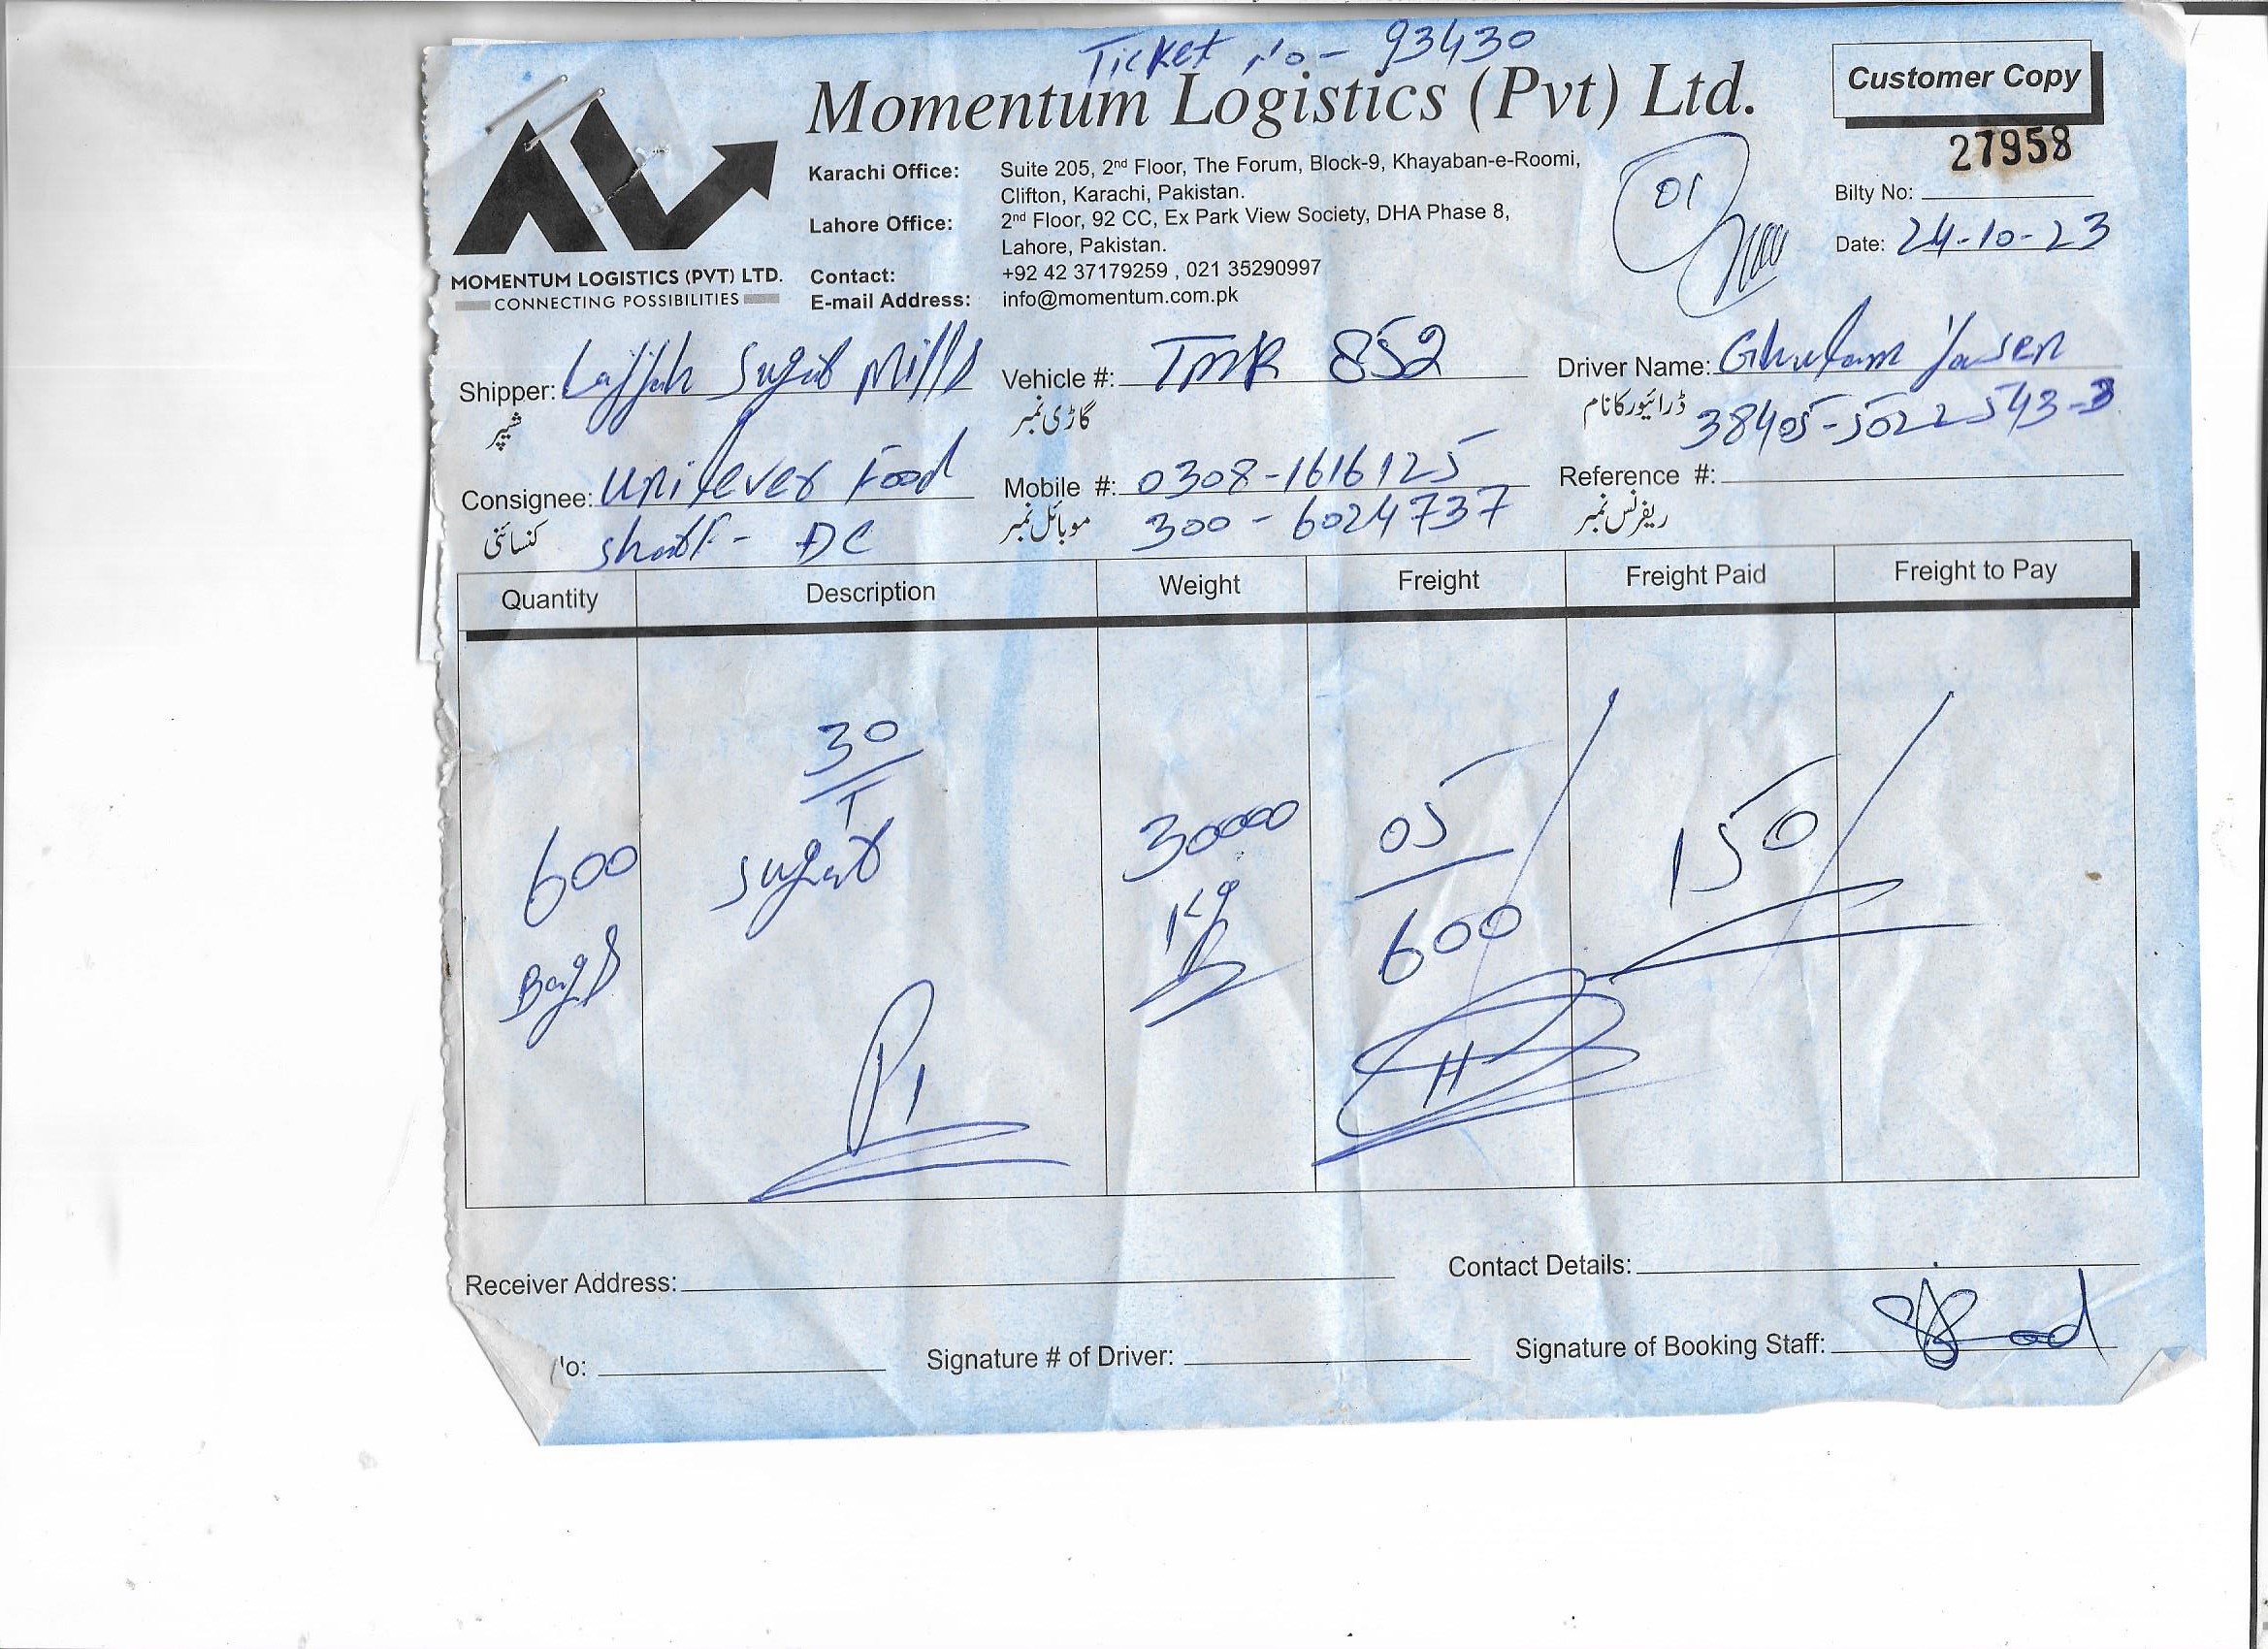 Ticket No - 93430
Momentum Logistics (Pvt) Ltd.
Customer Copy
27958
Karachi Office: Suite 205, 2nd Floor, The Forum, Block-9, Khayaban-e-Roomi,
Clifton, Karachi, Pakistan.
Lahore Office: 2nd Floor, 92 CC, Ex Park View Society, DHA Phase 8,
Lahore, Pakistan.
Contact: +92 42 37179259 , 021 35290997
E-mail Address: info@momentum.com.pk
MOMENTUM LOGISTICS (PVT) LTD.
CONNECTING POSSIBILITIES
01
Bilty No:
Date: 24-10-23
Shipper: Sugar Mills
شیپر
Vehicle #: TMR 852
گاڑی نمبر
Driver Name: Ghulam Yasen
ڈرائیور کا نام
38405-5022543-3
Consignee: Unilever Food
کنسائنی
DC
Mobile #: 0308-1616125
موبائل نمبر
300-6024737
Reference #:
ریفرنس نمبر
Quantity Description Weight Freight Freight Paid Freight to Pay
30
T
600 Sugar 30000 05 150
Bags Kg 600
P1
11
Receiver Address:
Contact Details:
Signature # of Driver:
Signature of Booking Staff: